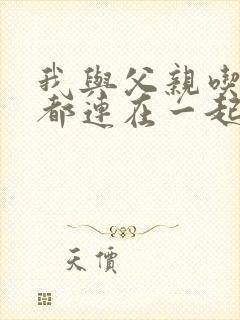 我與父親喫
都連在一起
天價